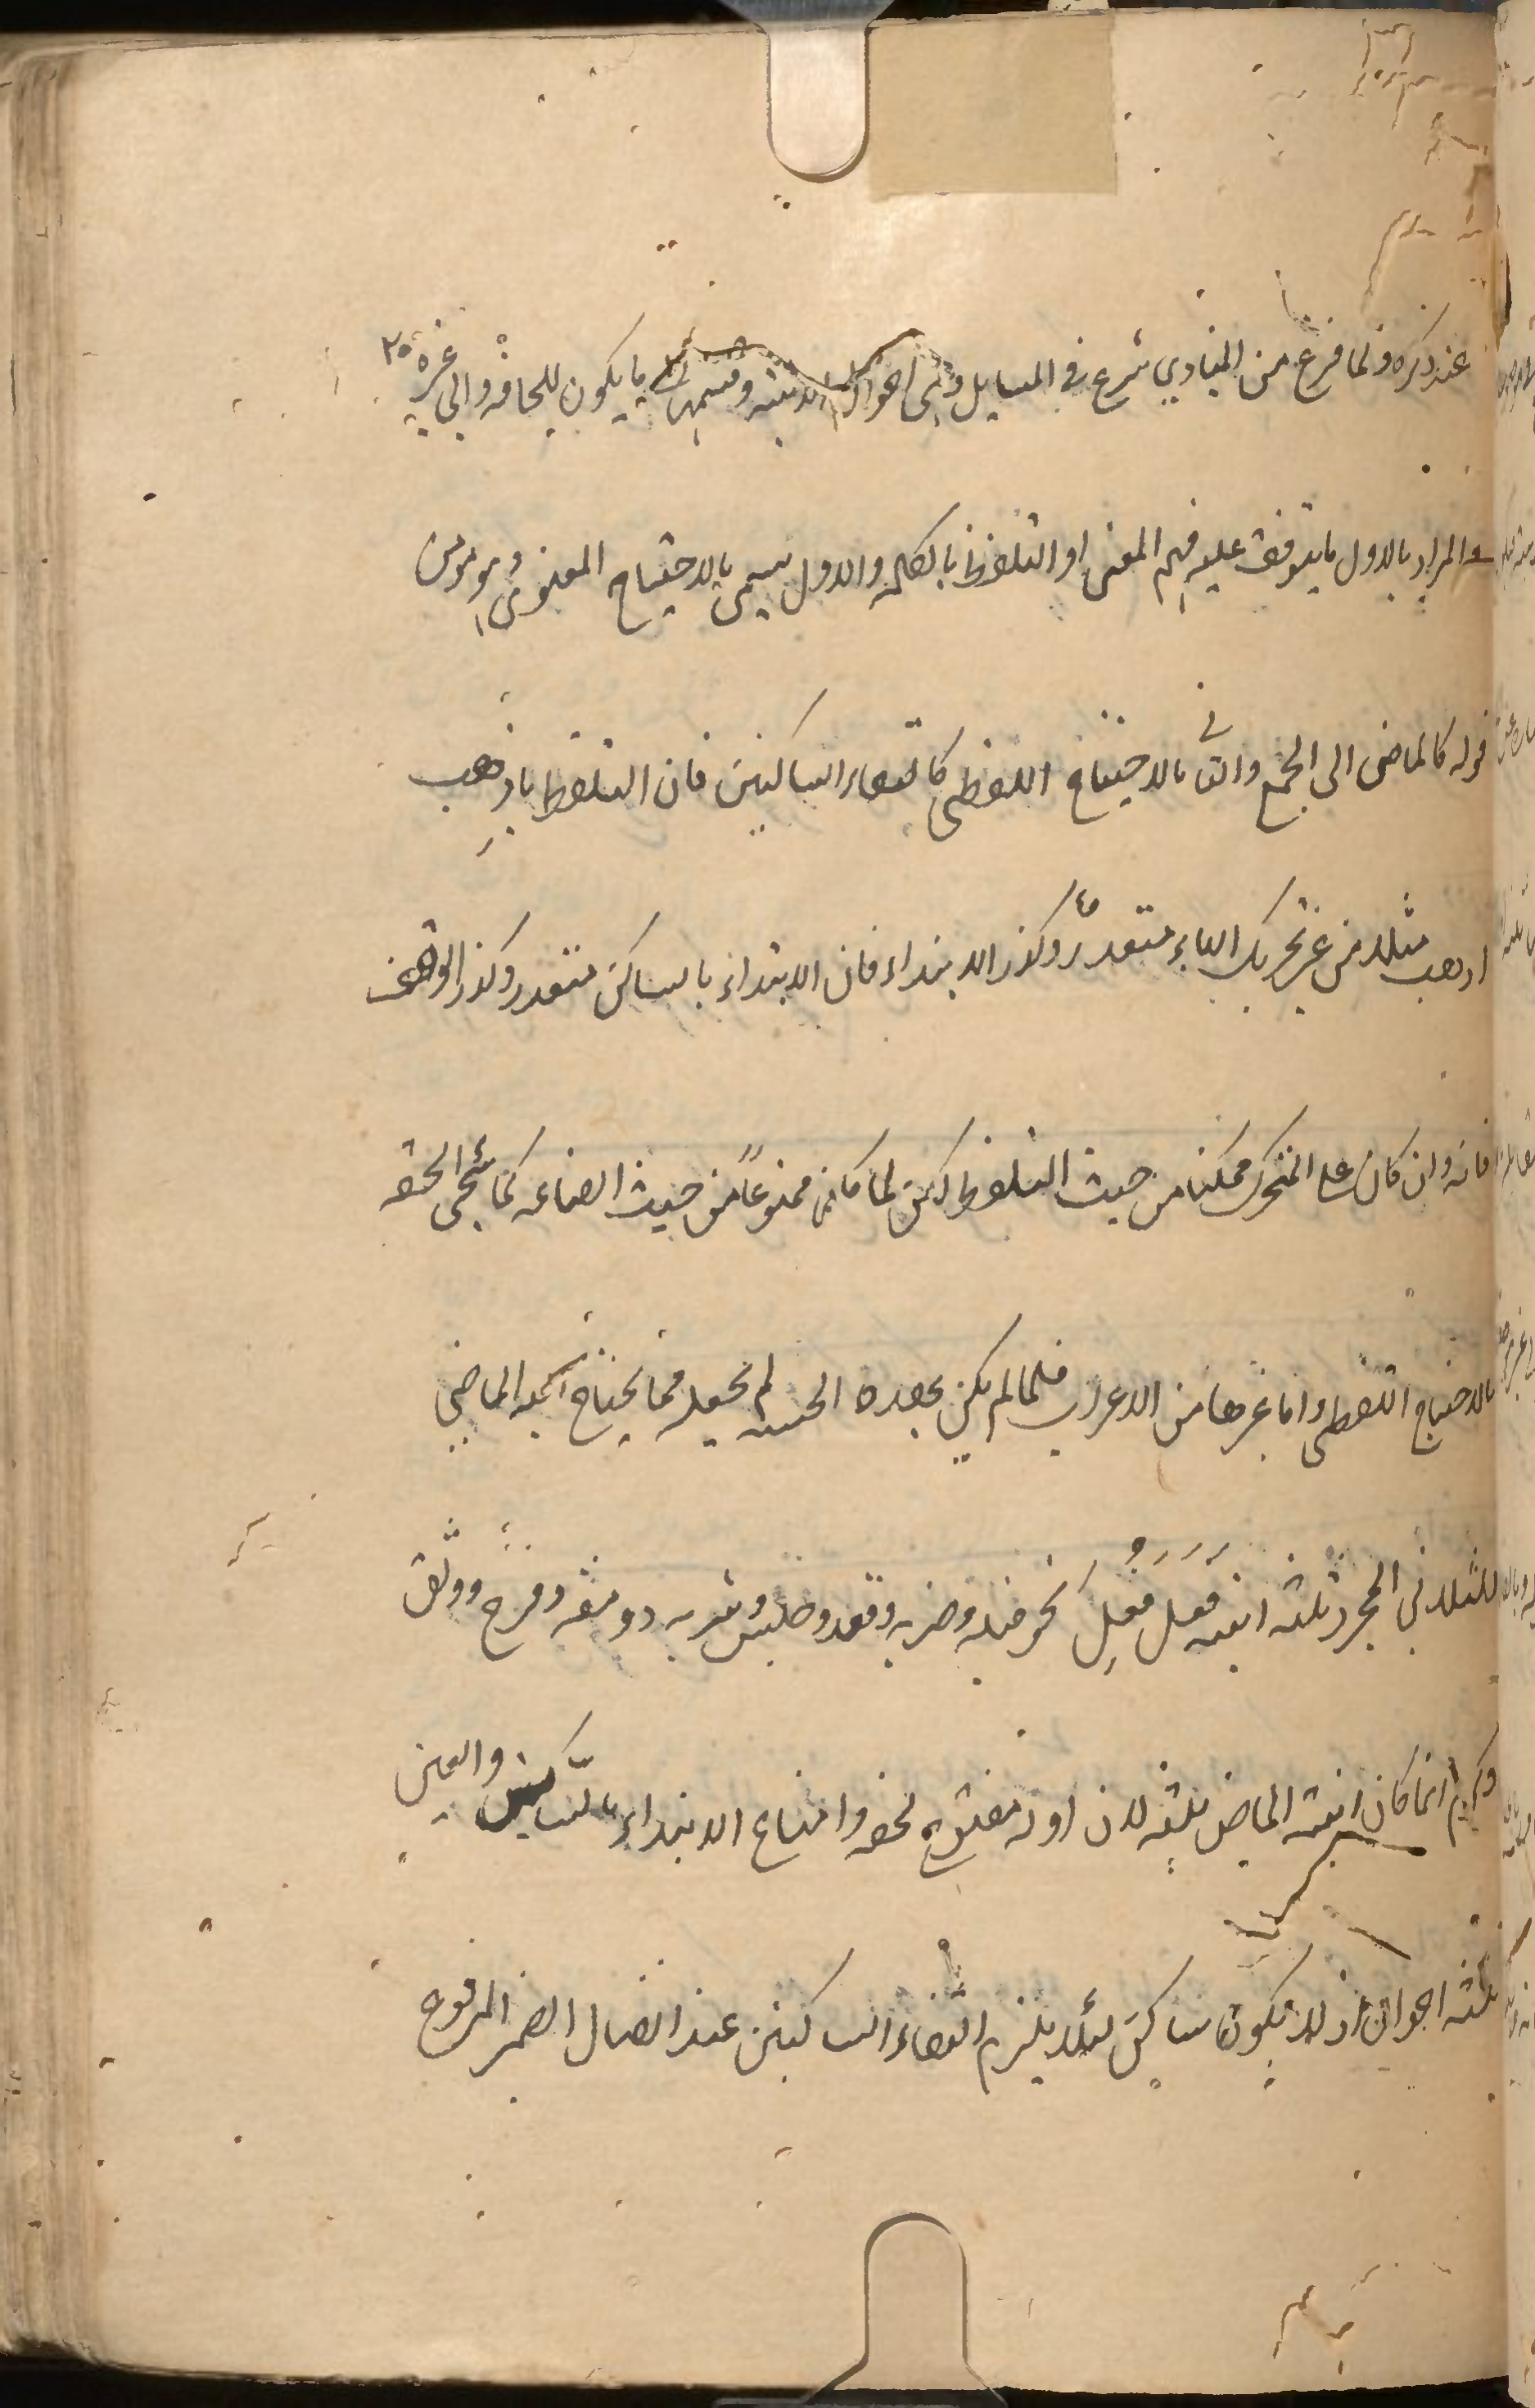 عند ذكره ولما فرغ من المبادي شرع في المسايل وهي احوال الابنية وقسمها الى ما يكون للحاجة والى غيره ٢٥
والمراد بالاول ما يتوقف عليه فهم المعنى او التلفظ بالكلمة والاول يسمى بالاحتياج المعنوى وهو من
قوله كالماضى الى الجمع والثانى بالاحتياج اللفظى كالتقاء الساكنين فان التلفظ باذهب
اذهب مثلا من غير تحريك الباء متعذر وكذا الابتداء فان الابتداء بالساكن متعذر وكذا الوقف
فانه وان كان على المتحرك ممكنا من حيث التلفظ لكن لما كان ممنوعاً من حيث الصناعه كما سيجئ الحقه
بالاحتياج اللفظى واما غيرها من الاعراب فلما لم يكن بهذه الحيثيه لم يجعله مما يحتاج اليه الماضى
للثلاثى المجرد ثلثة ابنيه فَعَل فَعِل فَعُل نحو قتله وضربه وقعد وجلس وشربه وومقه وفرح ووثق
وكرم انما كان ابنية الماضى ثلثه لان اوله مفتوح لخفه وامتناع الابتداء بالساكن والعين
ثلثه احوال اذ لا يكون ساكن لئلا يلزم التقاء الساكنين عند اتصال الضمير المرفوع